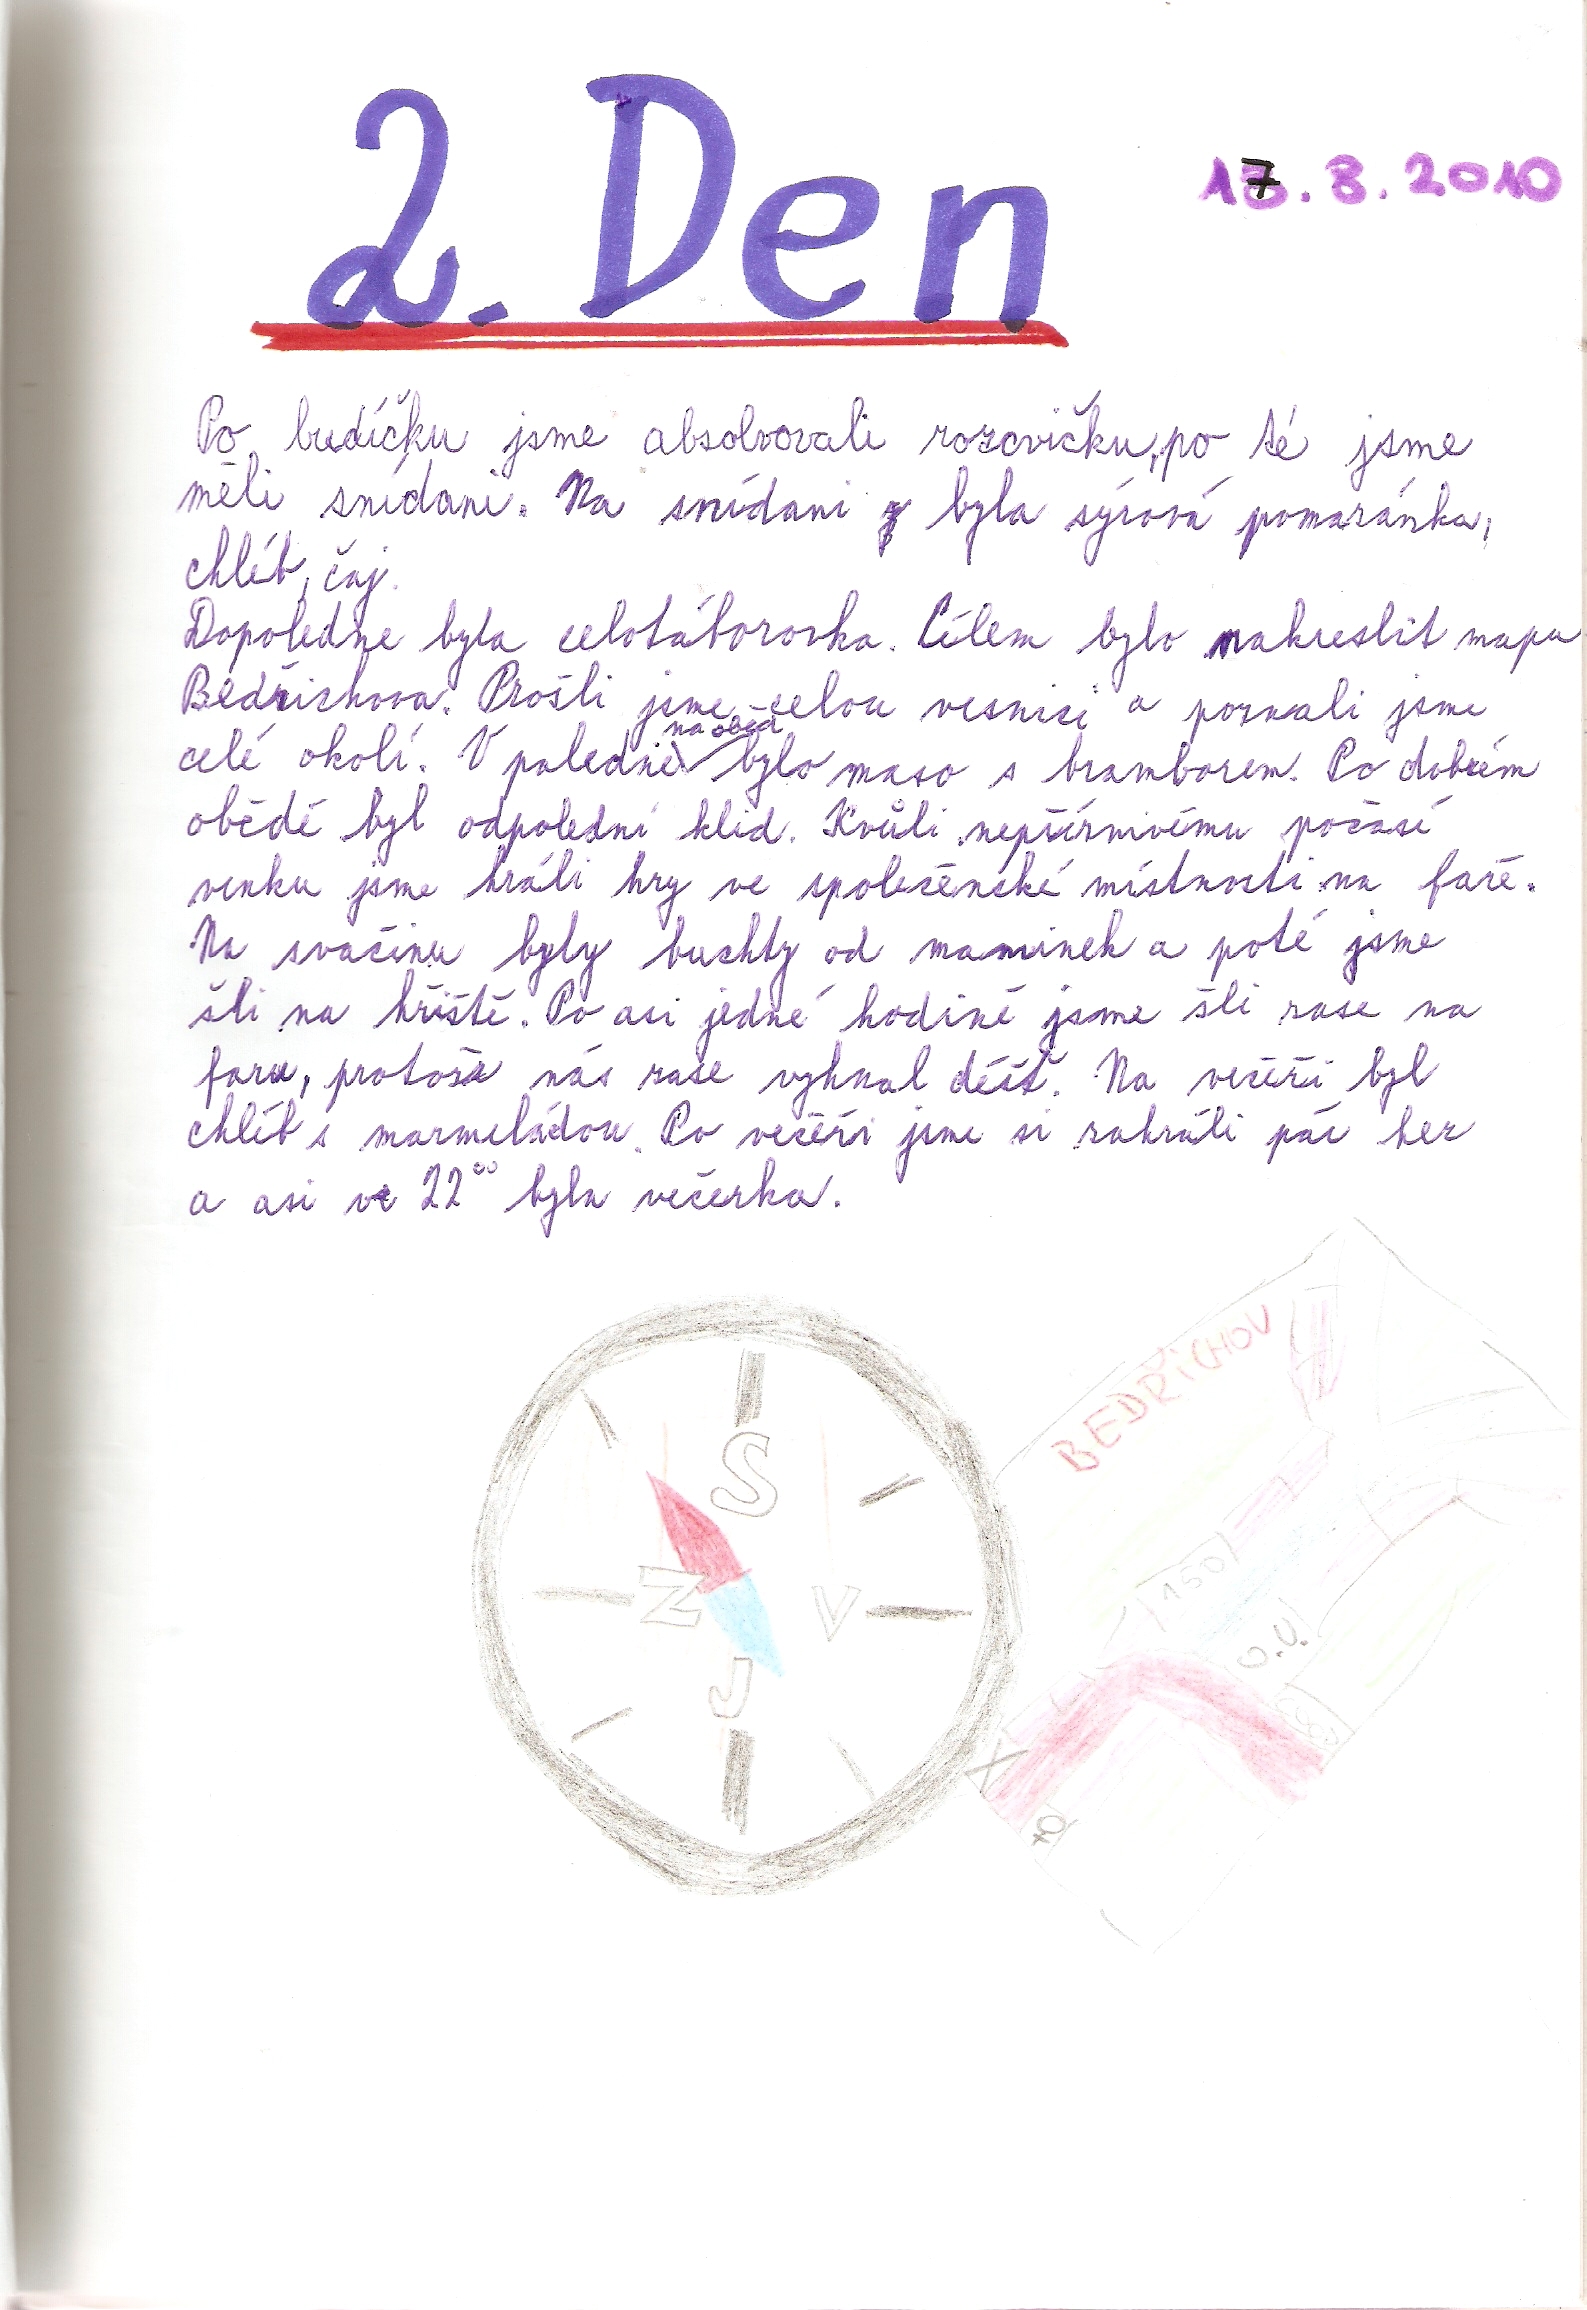 2. Den
17. 8. 2010
Po budíčku jsme absolvovali rozcvičku, po té jsme
měli snídani. Na snídani byla sýrová pomazánka,
chléb, čaj.
Dopoledne byla celotáborovka. Cílem bylo nakreslit mapu
Bedřichova. Prošli jsme celou vesnici a poznali jsme
celé okolí. V poledne na oběd bylo maso s bramborem. Po dobrém
obědě byl odpolední klid. Kvůli nepříznivému počasí
venku jsme hráli hry ve společenské místnosti na faře.
Na svačinu byly buchty od maminek a poté jsme
šli na hřiště. Po asi jedné hodině jsme šli zase na
faru, protože nás zase vyhnal déšť. Na večeři byl
chléb s marmeládou. Po večeři jsme si zahráli pár her
a asi ve 22⁰⁰ byla večerka.
BEDŘICHOV
S
Z V
J
150
O.Ú.